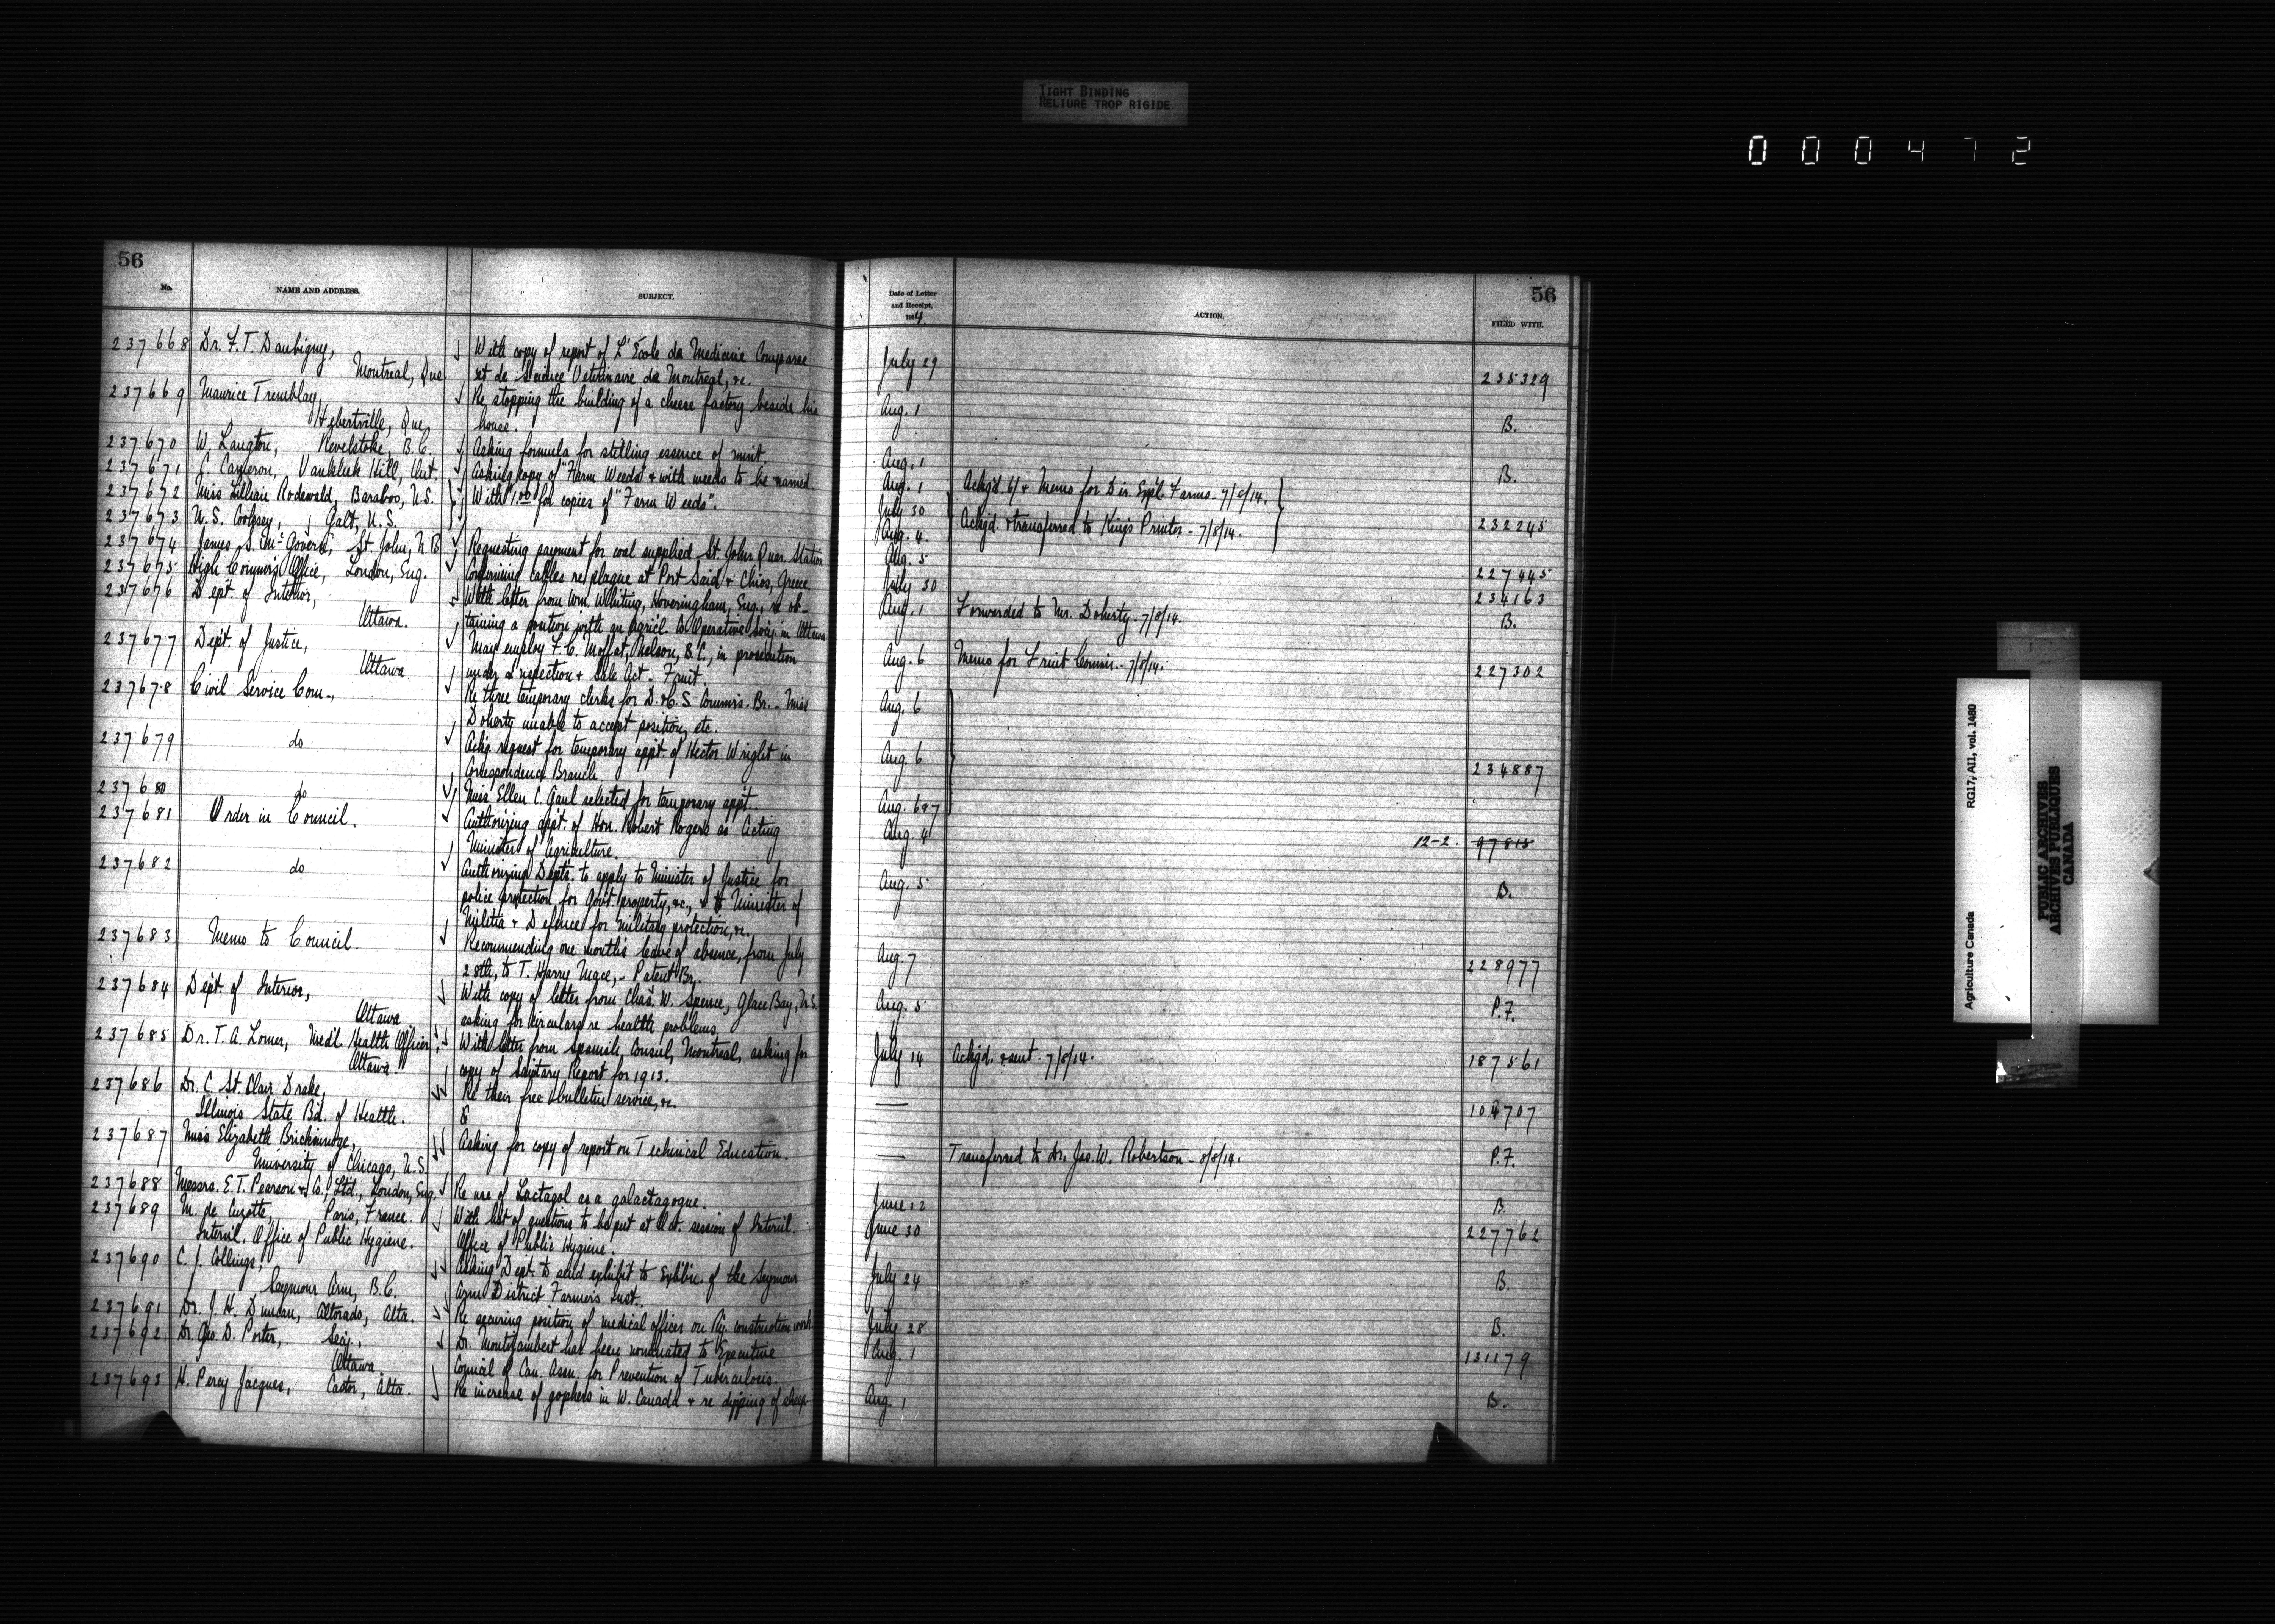 TIGHT BINDING
RELIURE TROP RIGIDE
000472
56
No. NAME AND ADDRESS. SUBJECT.
237668 Dr. F. T. Daubigny, With copy of report of L'Ecole de Medicine Comparee
Montreal, Que et de Science Veterinaire de Montreal, &c.
237669 Maurice Tremblay, Re stopping the building of a cheese factory beside his
Hebertville, Que, house.
237670 W. Langton, Revelstoke, B.C. Asking formula for stilling essence of mint
237671 C. Cameron, Vankleek Hill, Ont. Asking copy of "Farm Weeds" & with weeds to be named.
237672 Miss Lillian Rodewald, Baraboo, U.S. With 1.00 for copies of "Farm Weeds".
237673 Galt, U.S.
237674 James S. McGovern, St. John, N.B. Requesting payment for coal supplied St. John Quar. Station
237675 High Commr's Office, London, Eng. Confirming cables re plague at Port Said & Chios, Greece
237676 Dept. of Interior, With letter from Wm. Whiting, Hoveringham, Eng., re ob-
Ottawa. taining a position with an Agricl Co Operative Socy. in Ottawa
237677 Dept. of Justice, May employ F. C. Moffat, Nelson, B.C., in prosecution
Ottawa under Inspection & Sale Act - Fruit.
237678 Civil Service Com., Re three temporary clerks for D. & C. S. Commrs. Br. - Miss
Doherty unable to accept position, etc.
237679 do Ackg request for temporary appt. of Hector Wright in
Correspondence Branch.
237680 do Miss Ellen C. Gaul selected for temporary appt.
237681 Order in Council. Authorizing appt. of Hon. Robert Rogers as Acting
Minister of Agriculture.
237682 do Authorizing Depts. to apply to Minister of Justice for
police protection for Govt. property, &c., & to Minister of
Militia & Defence for military protection, &c.
237683 Memo to Council. Recommending one month's leave of absence, from July
28th, to T. Harry Mace, - Patent Br.
237684 Dept. of Interior, With copy of letter from Chas. W. Spence, Glace Bay, N.S.
Ottawa asking for circulars re health problems.
237685 Dr. T. A. Lomer, Medl. Health Officer, With letter from Spanish Consul, Montreal, asking for
Ottawa. copy of Sanitary Report for 1913.
237686 Dr. C. St. Clair Drake, Re their free bulletin service, &c.
Illinois State Bd. of Health.
237687 Miss Elizabeth Asking for copy of report on Technical Education.
University of Chicago, U.S.
237688 Messrs. E. T. Pearson & Co., Ltd., London, Eng. Re use of Lactagol as a galactagogue.
237689 M. de Paris, France. With list of questions to be put at Oct. session of Internl.
Internl. Office of Public Hygiene. Office of Public Hygiene.
237690 C. J. Collings, Asking Dept. to send exhibit to Exhibn. of the Seymour
Seymour Arm, B.C. Arm District Farmers Inst.
237691 Dr. J. H. Duncan, Altorado, Alta. Re securing position of medical officer on Ry. construction work
237692 Dr. Geo. D. Porter, Secy., Dr. Montizambert has been nominated to Executive
Ottawa Council of Can. Assn. for Prevention of Tuberculosis.
237693 H. Percy Jacques, Castor, Alta. Re increase of gophers in W. Canada & re dipping of sheep
Date of Letter and Receipt, 1914. ACTION. FILED WITH.
56
July 29 235329
Aug. 1 B.
Aug. 1 B.
Aug. 1 Ackgd. 6/ & Memo for Dir. Exptl. Farms - 7/8/14.
July 30
Aug. 4 Ackgd. & transferred to King's Printer - 7/8/14. 232245
Aug. 5 227445
July 30 234163
Aug. 1 Forwarded to Mr. Doherty - 7/8/14. B.
Aug. 6 Memo for Fruit Commr. - 7/8/14. 227302
Aug. 6
Aug. 6 234887
Aug. 6&7
Aug. 4 12-2. 97815
Aug. 5 B.
Aug. 7 228977
Aug. 5 P.F.
July 14 Ackgd. & sent. 7/8/14. 187561
— 104707
— Transferred to Dr. Jas. W. Robertson - 8/8/14. P.F.
June 12 B.
June 30 227762
July 24 B.
July 28 B.
Aug. 1 131179
Aug. 1 B.
Agriculture Canada RG17, A11, vol. 1480
PUBLIC ARCHIVES
ARCHIVES PUBLIQUES
CANADA